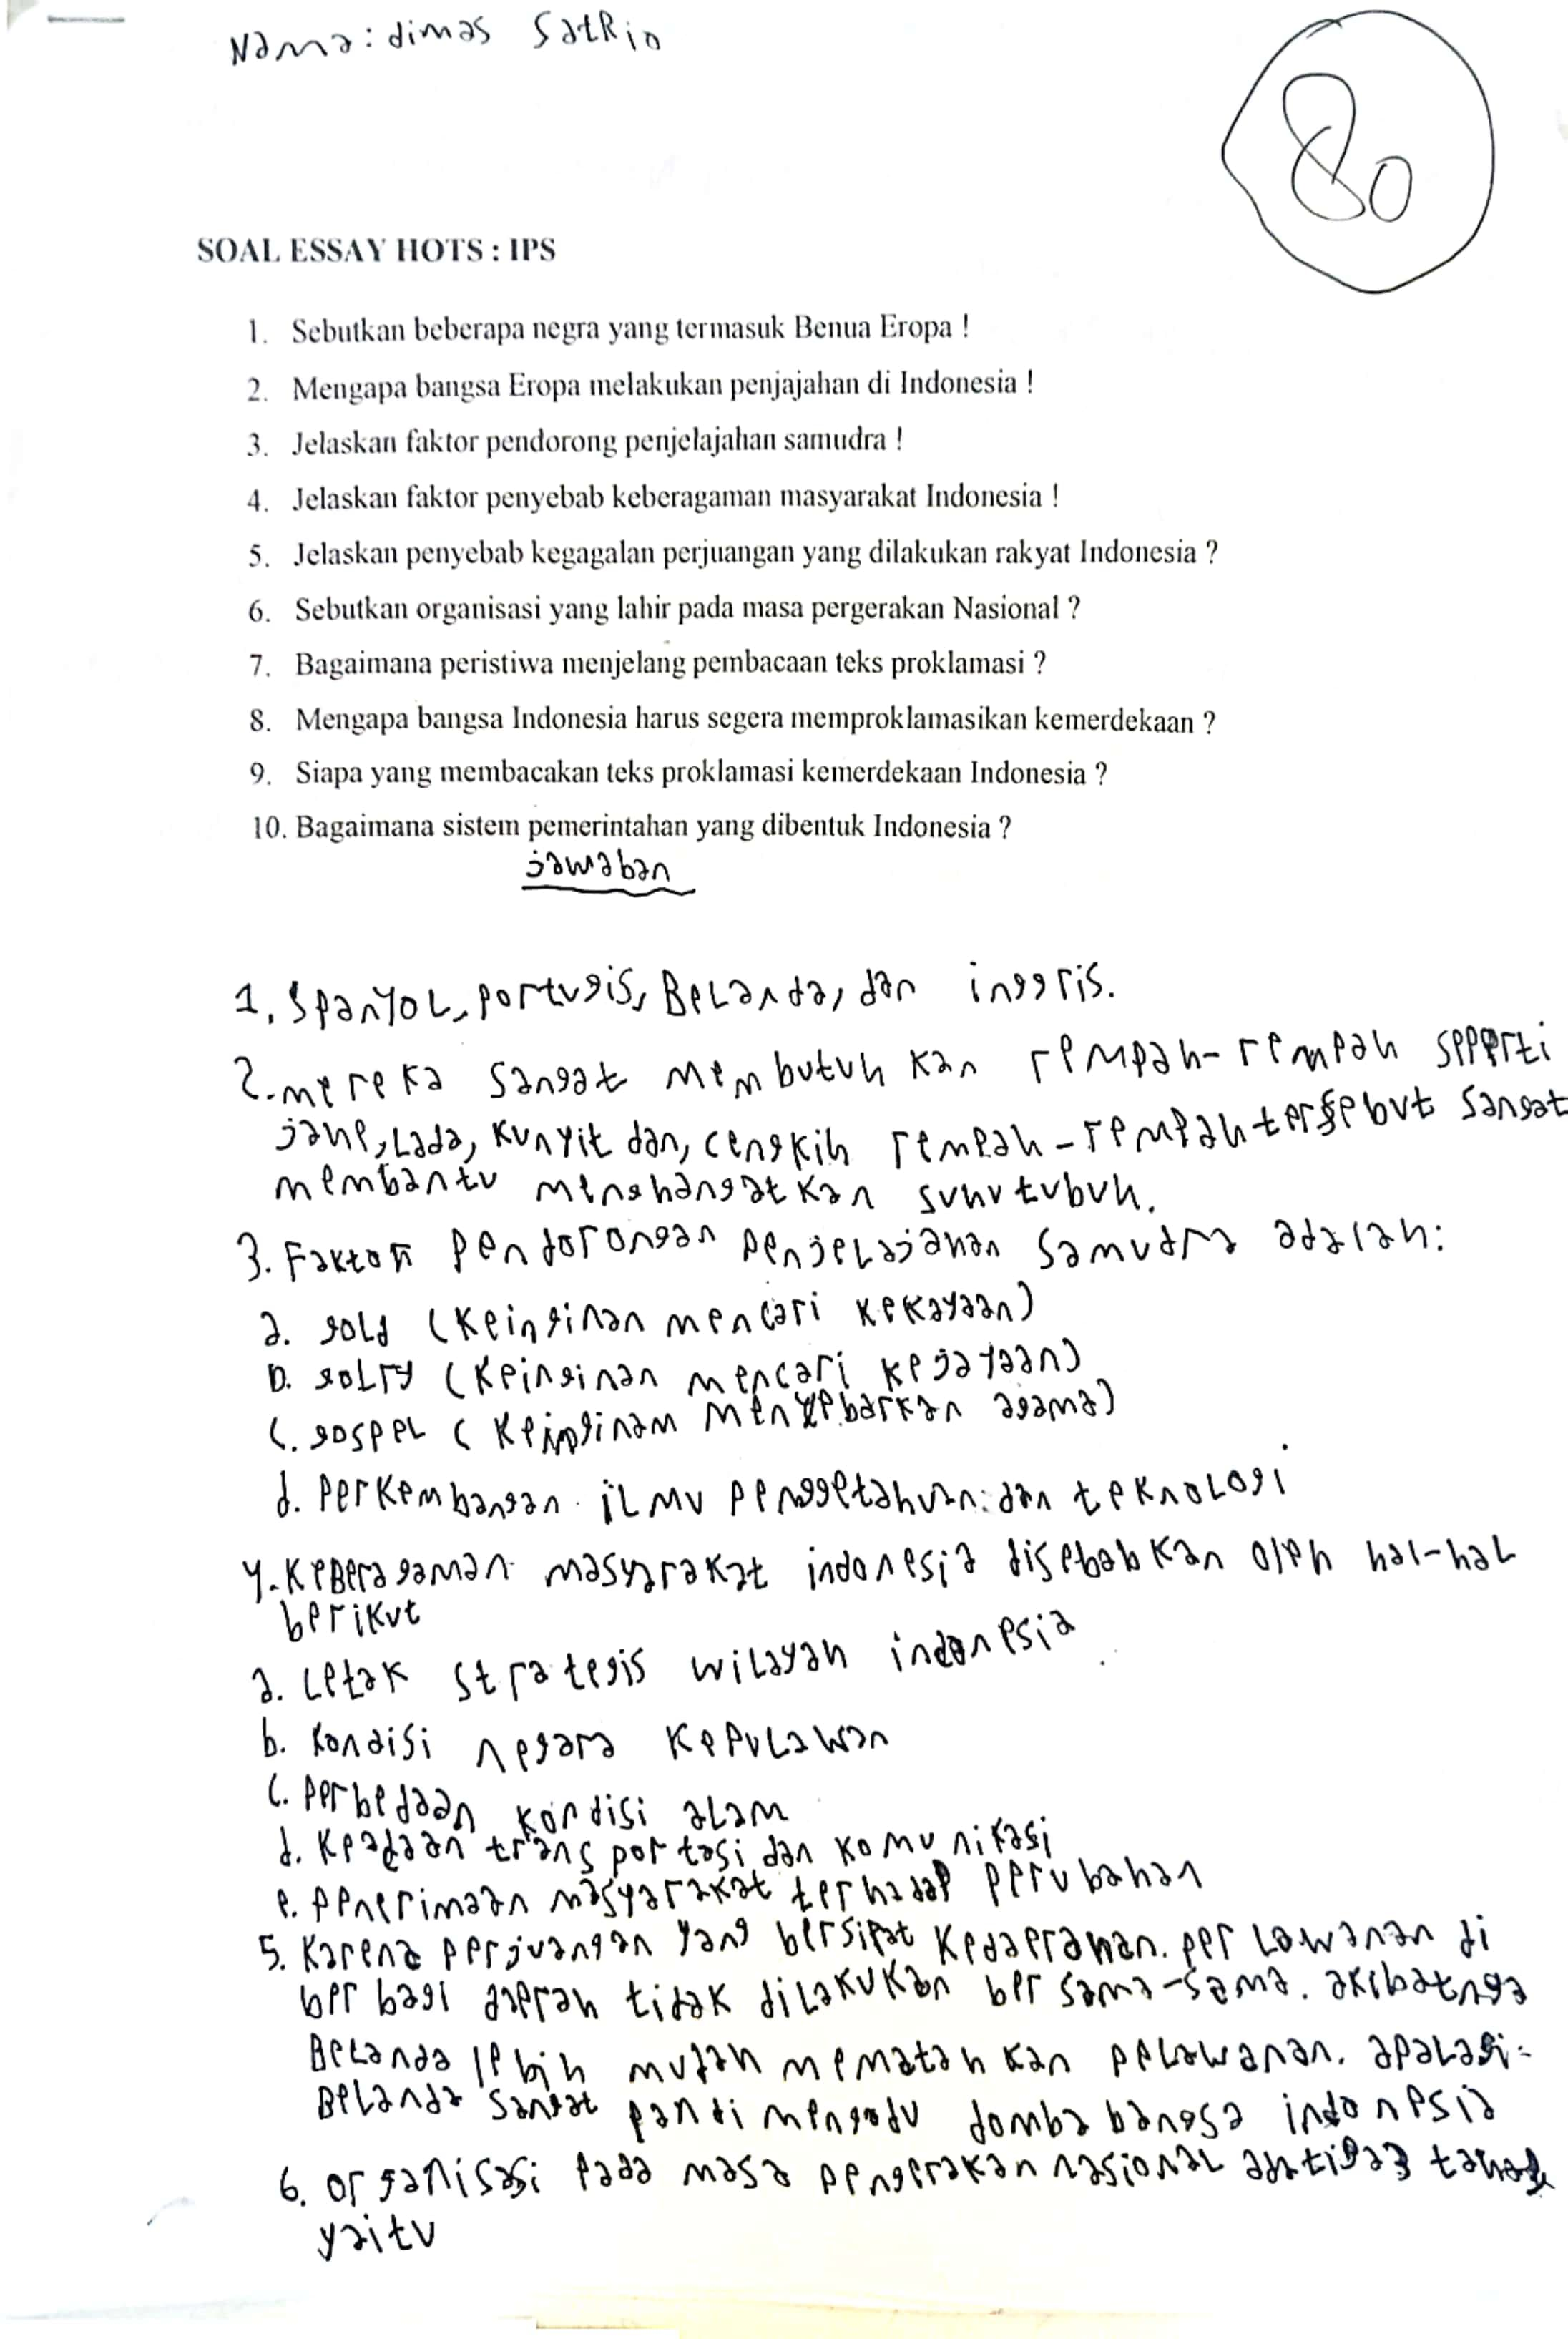 Nama: dimas SatRio
80
SOAL ESSAY HOTS : IPS
1. Sebutkan beberapa negra yang termasuk Benua Eropa !
2. Mengapa bangsa Eropa melakukan penjajahan di Indonesia !
3. Jelaskan faktor pendorong penjelajahan samudra !
4. Jelaskan faktor penyebab keberagaman masyarakat Indonesia !
5. Jelaskan penyebab kegagalan perjuangan yang dilakukan rakyat Indonesia ?
6. Sebutkan organisasi yang lahir pada masa pergerakan Nasional ?
7. Bagaimana peristiwa menjelang pembacaan teks proklamasi ?
8. Mengapa bangsa Indonesia harus segera memproklamasikan kemerdekaan ?
9. Siapa yang membacakan teks proklamasi kemerdekaan Indonesia ?
10. Bagaimana sistem pemerintahan yang dibentuk Indonesia ?
jawaban
1. SpanYoL, portugis, BeLanda, dan inggris.
2. mereka sangat membutuhkan rempah-rempah seperti
jahe, Lada, kunyit dan, cengkih rempah-rempah tersebut sangat
membantu menghangatkan suhu tubuh.
3. Faktor pendorongan penjeLajahan samudra adalah:
a. goLd (keinginan mencari kekayaan)
b. goLry (keinginan mencari kejayaan)
c. gospeL (keinginam menyebarkan agama)
d. perkembangan iLmu penggetahuan dan teknoLogi
4. keBeragaman masyarakat indonesia disebabkan oleh hal-haL
berikut
a. Letak strategis wiLayah indonesia
b. kondisi negara kepuLawan
c. perbedaan kondisi aLam
d. keadaan transportasi dan komunikasi
e. penerimaan masyarakat terhadap perubahan
5. karena perjuangan yang bersifat kedaerahan. perLawanan di
berbagi daerah tidak diLakukan bersama-sama. akibatnya
BeLanda lebih mudah mematahkan peLawanan. apaLagi
BeLanda sangat pandi mengadu domba bangsa indonesia
6. organisasi pada masa pengerakan nasionaL
yaitu